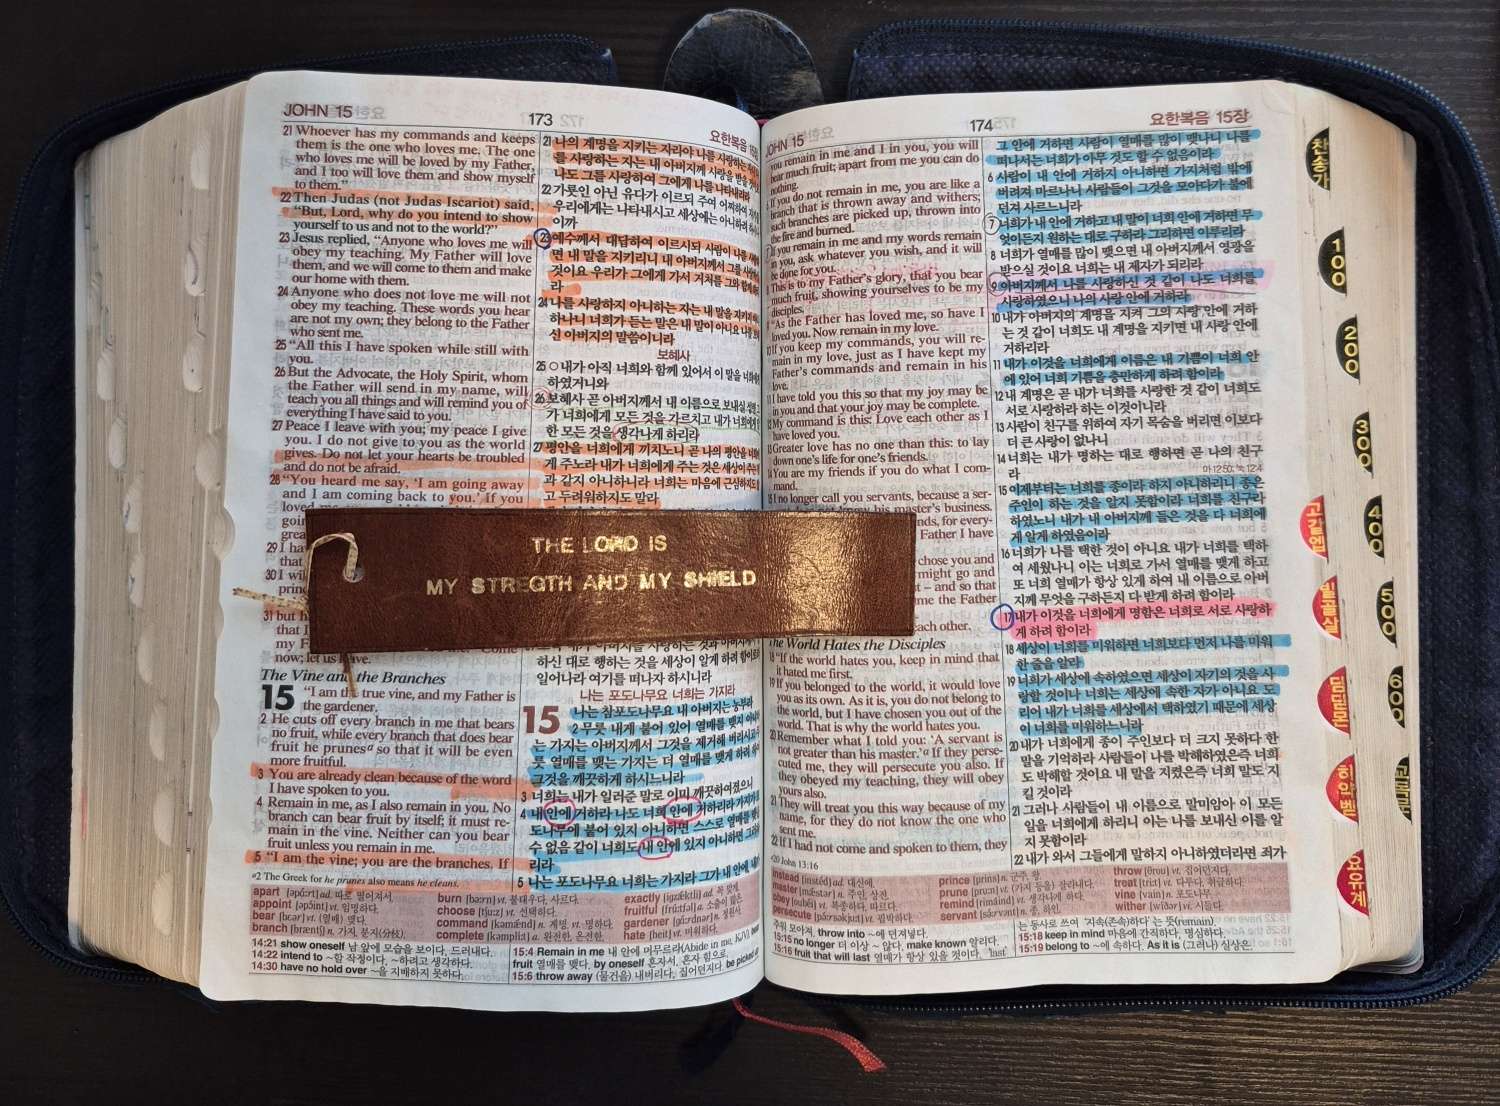 JOHN 15
173
요한복음
21 Whoever has my commands and keeps
them is the one who loves me. The one
who loves me will be loved by my Father,
and I too will love them and show myself
to them.”
22 Then Judas (not Judas Iscariot) said,
“But, Lord, why do you intend to show
yourself to us and not to the world?”
23 Jesus replied, “Anyone who loves me will
obey my teaching. My Father will love
them, and we will come to them and make
our home with them.
24 Anyone who does not love me will not
obey my teaching. These words you hear
are not my own; they belong to the Father
who sent me.
25 “All this I have spoken while still with
you.
26 But the Advocate, the Holy Spirit, whom
the Father will send in my name, will
teach you all things and will remind you of
everything I have said to you.
27 Peace I leave with you; my peace I give
you. I do not give to you as the world
gives. Do not let your hearts be troubled
and do not be afraid.
28 “You heard me say, ‘I am going away
and I am coming back to you.’ If you
29 I ha
30 I wil
31 but he
that I
now; let us leave.
The Vine and the Branches
15 “I am the true vine, and my Father is
the gardener.
2 He cuts off every branch in me that bears
no fruit, while every branch that does bear
fruit he prunesᵃ so that it will be even
more fruitful.
3 You are already clean because of the word
I have spoken to you.
4 Remain in me, as I also remain in you. No
branch can bear fruit by itself; it must re-
main in the vine. Neither can you bear
fruit unless you remain in me.
5 “I am the vine; you are the branches. If
ᵃ2 The Greek for he prunes also means he cleans.
21 나의 계명을 지키는 자라야 나를 사랑하는
를 사랑하는 자는 내 아버지께 사랑을 받을
나도 그를 사랑하여 그에게 나를 나타내리라
22 가룟인 아닌 유다가 이르되 주여 어찌하여
우리에게는 나타내시고 세상에는 아니하려
이까
23 예수께서 대답하여 이르시되 사람이 나를
면 내 말을 지키리니 내 아버지께서 그를
것이요 우리가 그에게 가서 거처를 그와 함께
라
24 나를 사랑하지 아니하는 자는 내 말을 지키지
하나니 너희가 듣는 말은 내 말이 아니요 나를
신 아버지의 말씀이니라
보혜사
25 ○내가 아직 너희와 함께 있어서 이 말을 너희에게
하였거니와
26 보혜사 곧 아버지께서 내 이름으로 보내실
가 너희에게 모든 것을 가르치고 내가 너희에게
한 모든 것을 생각나게 하리라
27 평안을 너희에게 끼치노니 곧 나의 평안을
게 주노라 내가 너희에게 주는 것은 세상이
과 같지 아니하니라 너희는 마음에 근심하지도
고 두려워하지도 말라
THE LORD IS
MY STREGTH AND MY SHIELD
하신 대로 행하는 것을 세상이 알게 하려 함이로라
일어나라 여기를 떠나자 하시니라
나는 포도나무요 너희는 가지라
15 나는 참포도나무요 내 아버지는 농부라
2 무릇 내게 붙어 있어 열매를 맺지
는 가지는 아버지께서 그것을 제거해 버리시고
릇 열매를 맺는 가지는 더 열매를 맺게 하려
그것을 깨끗하게 하시느니라
3 너희는 내가 일러준 말로 이미 깨끗하여졌으니
4 내 안에 거하라 나도 너희 안에 거하리라 가지가
도나무에 붙어 있지 아니하면 스스로 열매를
수 없음 같이 너희도 내 안에 있지 아니하면
리라
5 나는 포도나무요 너희는 가지라 그가 내 안에
apart [əpɑ́ːrt] ad. 따로 떨어져서.
appoint [əpɔ́int] vt. 임명하다.
bear [bɛər] vt. (열매) 맺다.
branch [bræntʃ] n. 가지, 분지(分枝).
burn [bəːrn] vt. 불태우다, 사르다.
choose [tʃuːz] vt. 선택하다.
command [kəmǽnd] n. 계명. vt. 명하다.
complete [kəmplíːt] a. 완전한, 온전한.
exactly [igzǽktli] ad. 꼭 맞게.
fruitful [frúːtfəl] a. 소출이 많은.
gardener [gɑ́ːrdnər] n. 정원사.
hate [heit] vt. 미워하다.
14:21 show oneself 남 앞에 모습을 보이다, 드러내다.
14:22 intend to ~할 작정이다, ~하려고 생각하다.
14:30 have no hold over ~을 지배하지 못하다.
15:4 Remain in me 내 안에 머무르라(Abide in me, KJV).
fruit 열매를 맺다. by oneself 혼자서, 혼자 힘으로.
15:6 throw away (물건을) 내버리다, 집어던지다. be picked
JOHN 15
174
요한복음 15장
you remain in me and I in you, you will
bear much fruit; apart from me you can do
nothing.
If you do not remain in me, you are like a
branch that is thrown away and withers;
such branches are picked up, thrown into
the fire and burned.
If you remain in me and my words remain
in you, ask whatever you wish, and it will
be done for you.
This is to my Father’s glory, that you bear
much fruit, showing yourselves to be my
disciples.
“As the Father has loved me, so have I
loved you. Now remain in my love.
10 If you keep my commands, you will re-
main in my love, just as I have kept my
Father’s commands and remain in his
love.
I have told you this so that my joy may be
in you and that your joy may be complete.
My command is this: Love each other as I
have loved you.
Greater love has no one than this: to lay
down one’s life for one’s friends.
You are my friends if you do what I com-
mand.
I no longer call you servants, because a ser-
his master’s business.
nds, for every-
Father I have
chose you and
might go and
t – and so that
me the Father
each other.
the World Hates the Disciples
18 “If the world hates you, keep in mind that
it hated me first.
19 If you belonged to the world, it would love
you as its own. As it is, you do not belong to
the world, but I have chosen you out of the
world. That is why the world hates you.
20 Remember what I told you: ‘A servant is
not greater than his master.’ᵃ If they perse-
cuted me, they will persecute you also. If
they obeyed my teaching, they will obey
yours also.
21 They will treat you this way because of my
name, for they do not know the one who
sent me.
22 If I had not come and spoken to them, they
ᵃ20 John 13:16
그 안에 거하면 사람이 열매를 많이 맺나니 나를
떠나서는 너희가 아무 것도 할 수 없음이라
6 사람이 내 안에 거하지 아니하면 가지처럼 밖에
버려져 마르나니 사람들이 그것을 모아다가 불에
던져 사르느니라
7 너희가 내 안에 거하고 내 말이 너희 안에 거하면 무
엇이든지 원하는 대로 구하라 그리하면 이루리라
8 너희가 열매를 많이 맺으면 내 아버지께서 영광을
받으실 것이요 너희는 내 제자가 되리라
9 아버지께서 나를 사랑하신 것 같이 나도 너희를
사랑하였으니 나의 사랑 안에 거하라
10 내가 아버지의 계명을 지켜 그의 사랑 안에 거하
는 것 같이 너희도 내 계명을 지키면 내 사랑 안에
거하리라
11 내가 이것을 너희에게 이름은 내 기쁨이 너희 안
에 있어 너희 기쁨을 충만하게 하려 함이라
12 내 계명은 곧 내가 너희를 사랑한 것 같이 너희도
서로 사랑하라 하는 이것이니라
13 사람이 친구를 위하여 자기 목숨을 버리면 이보다
더 큰 사랑이 없나니
14 너희는 내가 명하는 대로 행하면 곧 나의 친구
라
15 이제부터는 너희를 종이라 하지 아니하리니 종은
주인이 하는 것을 알지 못함이라 너희를 친구라
하였노니 내가 내 아버지께 들은 것을 다 너희에
게 알게 하였음이라
16 너희가 나를 택한 것이 아니요 내가 너희를 택하
여 세웠나니 이는 너희로 가서 열매를 맺게 하고
또 너희 열매가 항상 있게 하여 내 이름으로 아버
지께 무엇을 구하든지 다 받게 하려 함이라
17 내가 이것을 너희에게 명함은 너희로 서로 사랑하
게 하려 함이라
18 세상이 너희를 미워하면 너희보다 먼저 나를 미워
한 줄을 알라
19 너희가 세상에 속하였으면 세상이 자기의 것을 사
랑할 것이나 너희는 세상에 속한 자가 아니요 도
리어 내가 너희를 세상에서 택하였기 때문에 세상
이 너희를 미워하느니라
20 내가 너희에게 종이 주인보다 더 크지 못하다 한
말을 기억하라 사람들이 나를 박해하였은즉 너희
도 박해할 것이요 내 말을 지켰은즉 너희 말도 지
킬 것이라
21 그러나 사람들이 내 이름으로 말미암아 이 모든
일을 너희에게 하리니 이는 나를 보내신 이를 알
지 못함이라
22 내가 와서 그들에게 말하지 아니하였더라면 죄가
instead [instéd] ad. 대신에.
master [mǽstər] n. 주인, 상전.
obey [oubéi] vt. 복종하다, 따르다.
persecute [pə́ːrsəkjuːt] vt. 핍박하다.
prince [prins] n. 군주, 왕.
prune [pruːn] vt. (가지 등을) 잘라내다.
remind [rimáind] vt. 생각나게 하다.
servant [sə́ːrvənt] n. 종, 하인.
throw [θrou] vt. 집어던지다.
treat [triːt] vt. 다루다, 취급하다.
vine [vain] n. 포도나무.
wither [wíðər] vi. 시들다.
주워 모아져. throw into ~에 던져넣다.
15:15 no longer 더 이상 ~ 않다. make known 알리다.
15:16 fruit that will last 열매가 항상 있을 것이다. 'last'
는 동사로 쓰여 '지속(존속)하다'는 뜻(remain)
15:18 keep in mind 마음에 간직하다, 명심하다.
15:19 belong to ~에 속하다. As it is (그러나) 실상은.
찬송가
100
200
300
400
500
600
교독문
고갈엡
빌골살
딤딛몬
히약벧
요유계